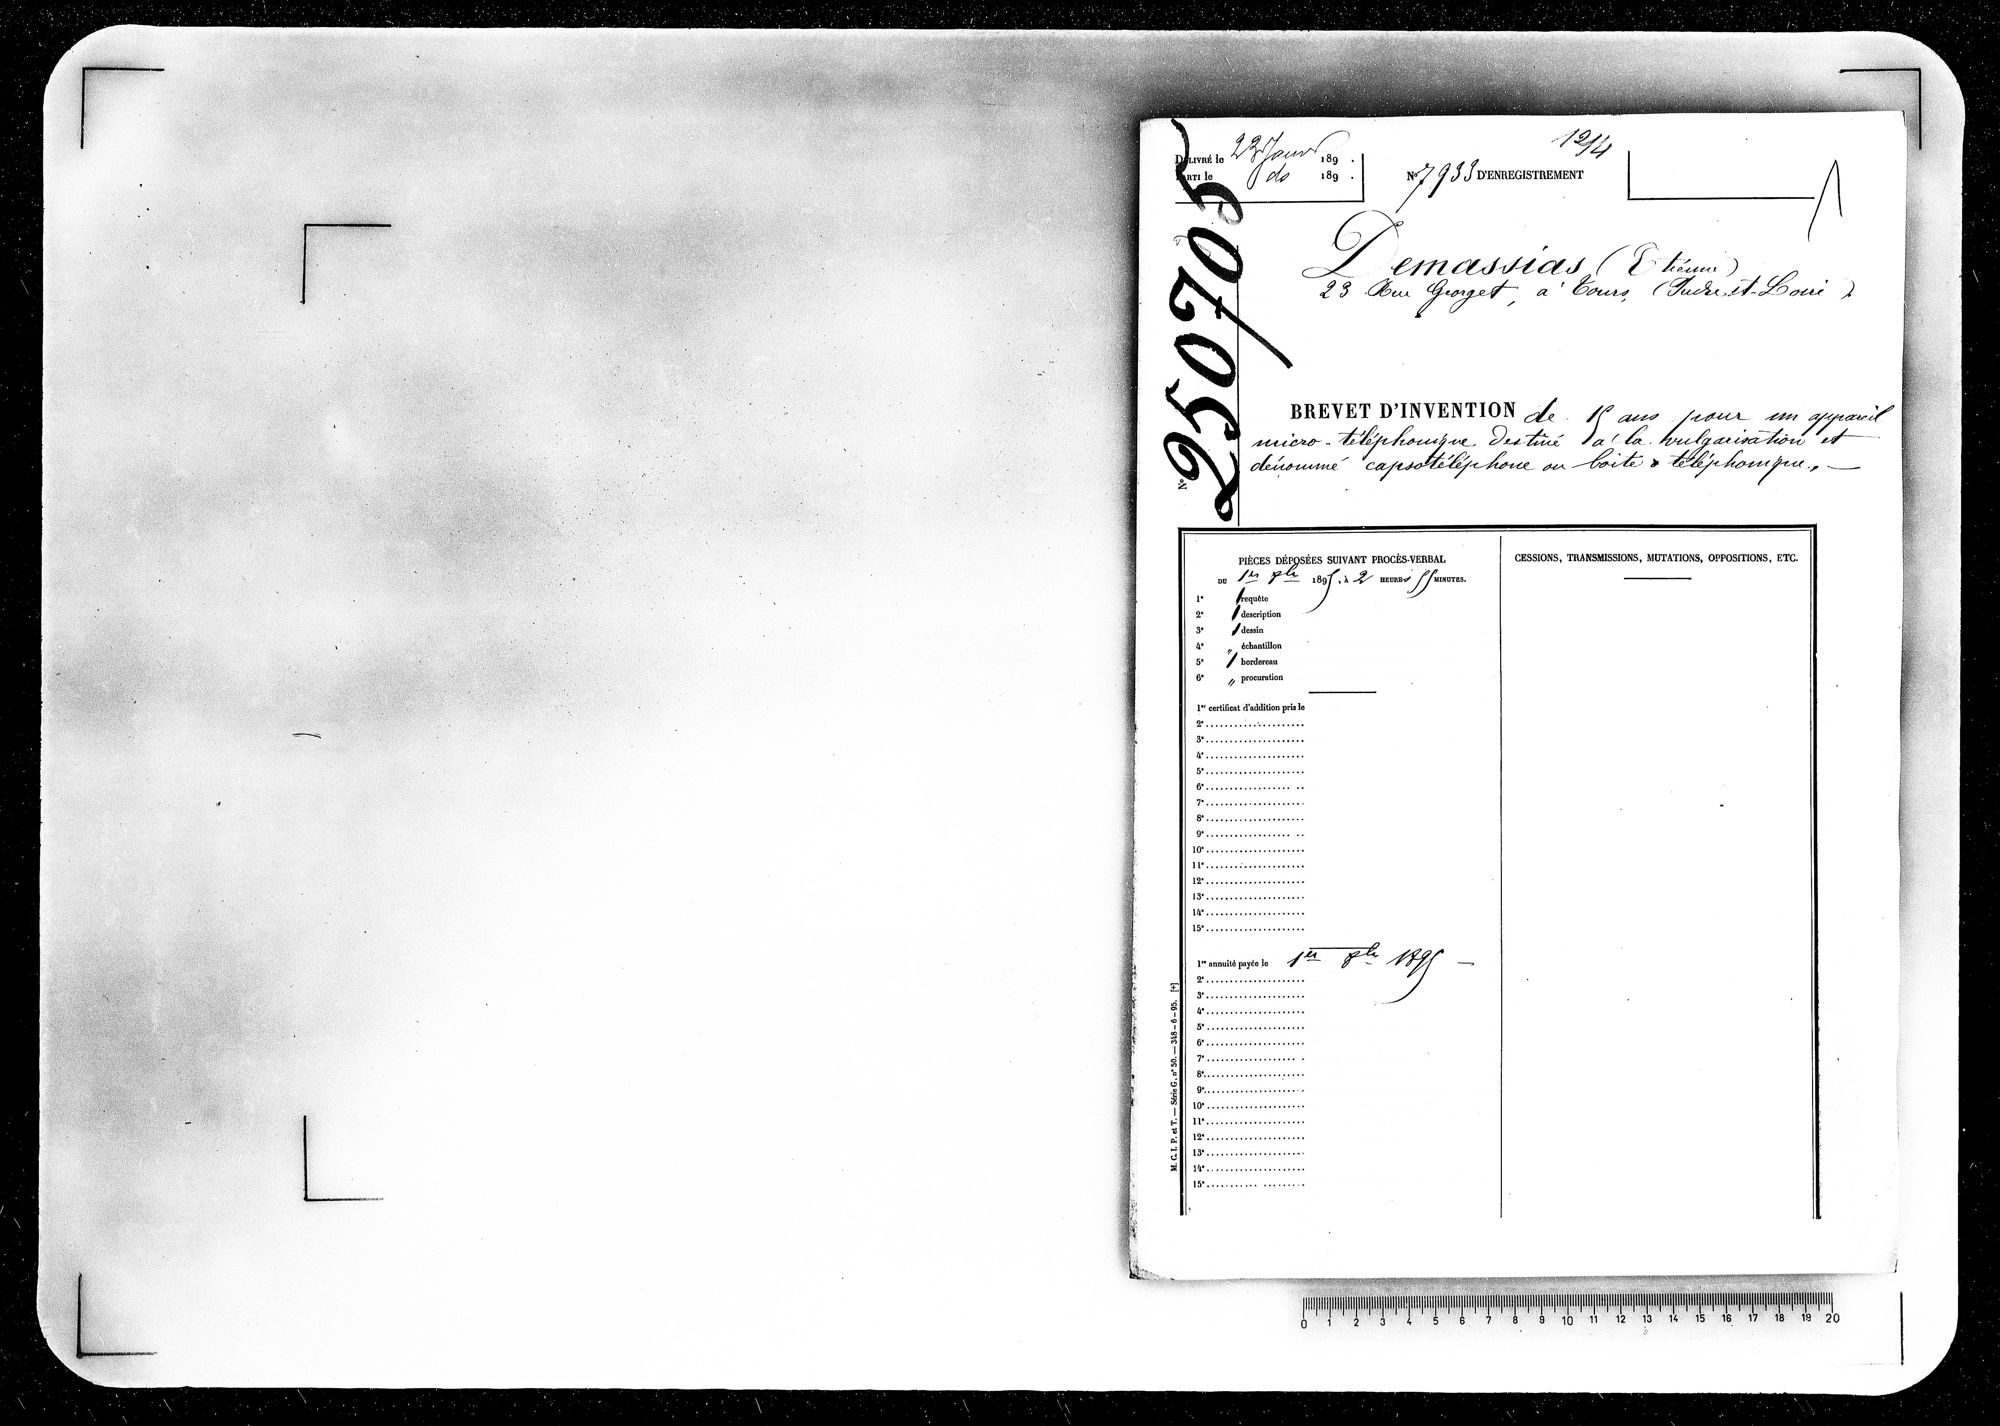 1214
DÉLIVRÉ le 22 Janv 189 .
PARTI le do 189 .
N° 7933 D'ENREGISTREMENT
N° 250705
Demassias (Etienne)
23 Rue Georget, à Tours, (Indre-et-Loire)
BREVET D'INVENTION de 15 ans pour un appareil
micro-téléphonique destiné à la vulgarisation et
dénommé capsotéléphone ou boite téléphonique. —
PIÈCES DÉPOSÉES SUIVANT PROCÈS-VERBAL
DU 1er 1895, à 2 HEURES 55 MINUTES.
1° 1 requête
2° 1 description
3° 1 dessin
4° „ échantillon
5° 1 bordereau
6° „ procuration
1er certificat d'addition pris le
2e
3e
4e
5e
6e
7e
8e
9e
10e
11e
12e
13e
14e
15e
1re annuité payée le 1er 1895 —
2e
3e
4e
5e
6e
7e
8e
9e
10e
11e
12e
13e
14e
15e
CESSIONS, TRANSMISSIONS, MUTATIONS, OPPOSITIONS, ETC.
M. C. I. P. et T. — Série G. n° 50. — 348-6-95. [4]
0 1 2 3 4 5 6 7 8 9 10 11 12 13 14 15 16 17 18 19 20